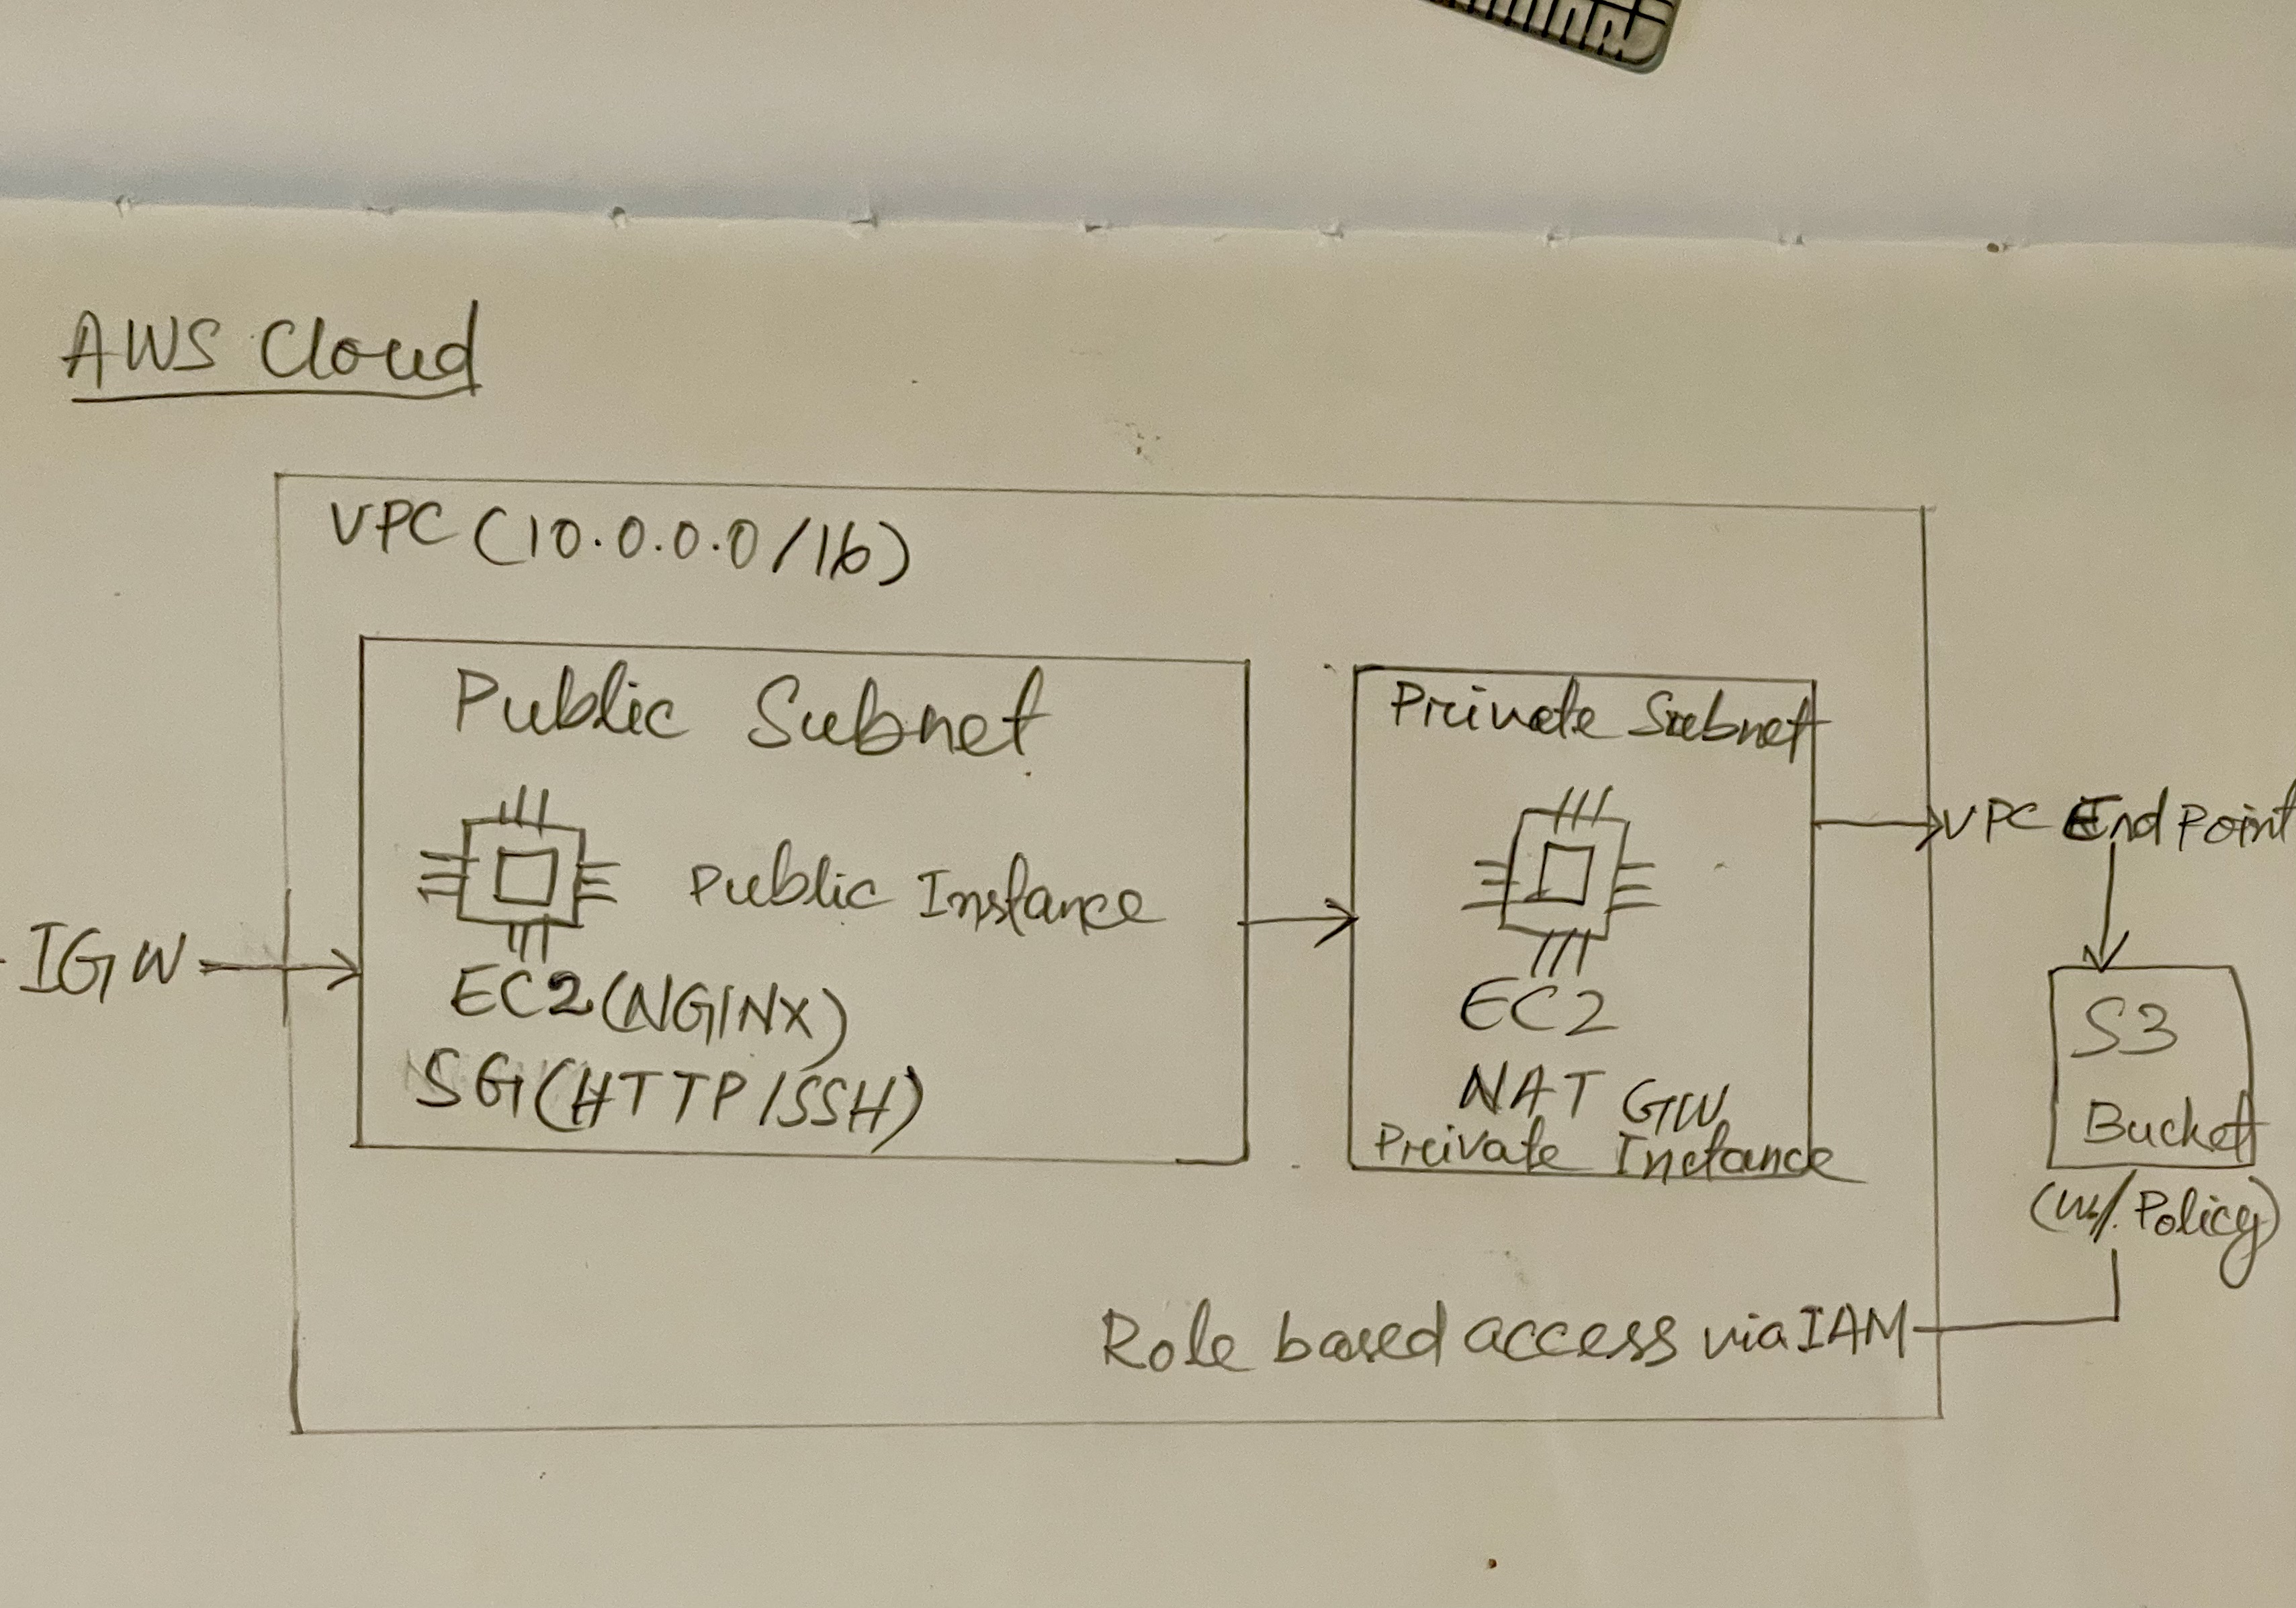 AWS Cloud
VPC (10.0.0.0/16)
Public Subnet
Public Instance
EC2 (NGINX)
SG (HTTP/SSH)
IGW
Private Subnet
EC2
NAT GW
Private Instance
VPC EndPoint
S3
Bucket
(w/. Policy)
Role based access via IAM